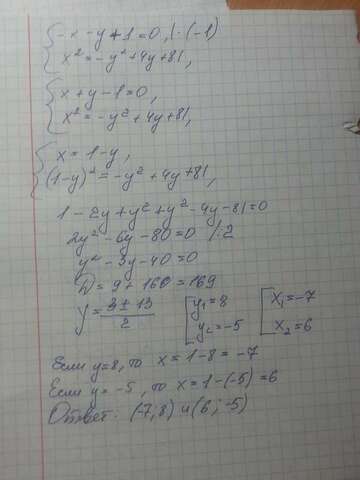 -x - y + 1 = 0, | · (-1)
x² = -y² + 4y + 81,
x + y - 1 = 0,
x² = -y² + 4y + 81,
x = 1 - y,
(1-y)² = -y² + 4y + 81,
1 - 2y + y² + y² - 4y - 81 = 0
2y² - 6y - 80 = 0 /:2
y² - 3y - 40 = 0
D = 9 + 160 = 169
y = (3 ± 13)/2 [y₁ = 8 [x₁ = -7
y₂ = -5 x₂ = 6
Если y = 8, то x = 1 - 8 = -7
Если y = -5, то x = 1 - (-5) = 6
Ответ: (-7; 8) и (6; -5)